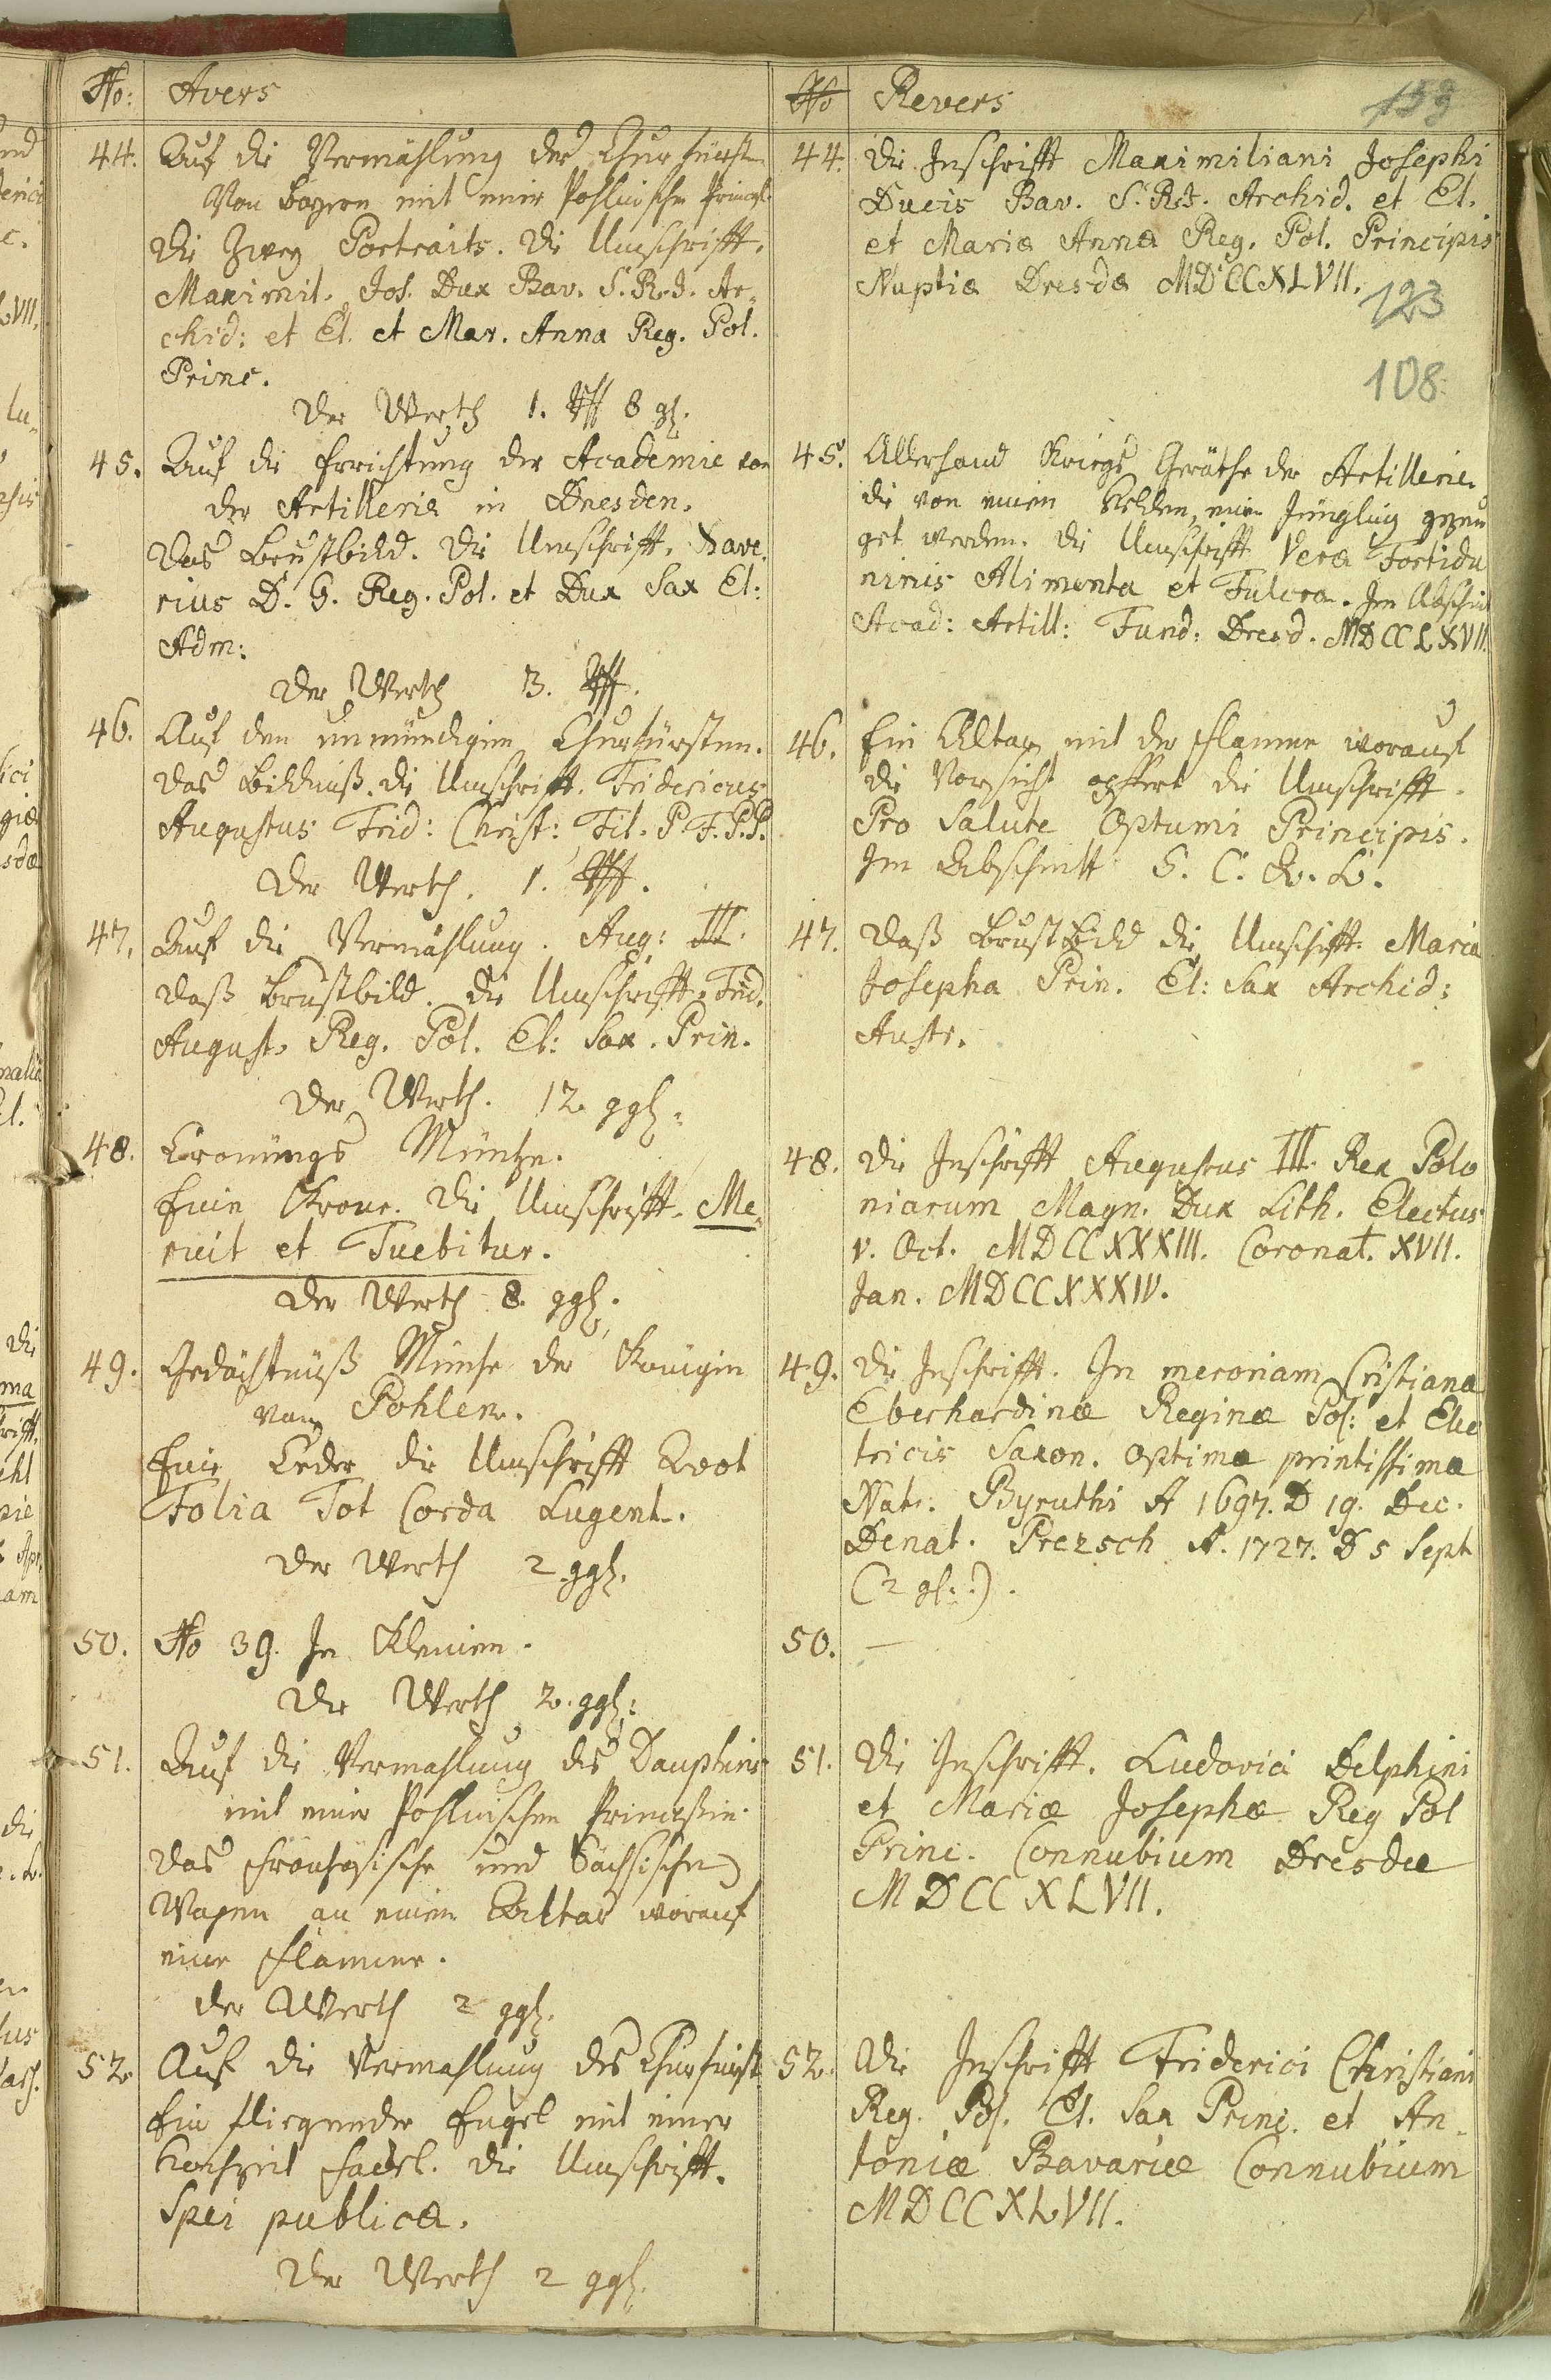 No: Avers
44. Auf die Vermählung des Churfürsten
Von Bayern mit einer Pohlnischen Princeß.
Die Zwey Portraits. Die Umschrifft.
Maximil. Jos. Dux Bav. S. R. I. Ar¬
chid: et El. et Mar. Anna Reg. Pol.
Princ.
Der Werth 1. rthl 8 gl.
45. Auf die Errichtung der Academie von
der Artillerie in Dresden.
Das Brustbild. Die Umschrifft. Xave.
rius D. G. Reg. Pol. et Dux Sax El:
Adm:
Der Werth 3. rthl.
46. Auf den unmündigen Churfürsten.
Das Bildniß. die Umschrifft. Fridericus
Augustus Frid: Christ: Fil. P. F. P. P.
Der Werth. 1. rthl.
47. Auf die Vermählung. Aug: III.
Daß Brustbild. Die Umschrifft. Frid.
August. Reg. Pol. El: Sax. Prin.
Der Werth. 12. ggl:
48. Cronungs Müntze.
Eine Krone. Die Umschrifft. Me¬
ruit et Tuebitur.
Der Werth 8. ggl.
49. Gedächtnüß Müntze der Königin
von Pohlen.
Eine Ceder die Umschrifft Qvot
Folia Tot Corda Lugent.
Der Werth 2 ggl.
50. No 39. In Kleinen.
Der Werth 2. ggl:
51. Auf die Vermahlung des Dauphins
mit einer Pohlnischen Princeßin.
Das Frantzösische und Sächsische
Wapen an einem Altar worauf
eine Flamme.
der Werth 2 ggl.
52. Auf die Vermahlung des Churfürst
Ein fliegender Engel mit einer
Hochzeit Fackel. Die Umschrifft.
Spei publicæ.
Der Werth 2 ggl.
No Revers
159
44. Die Inschrifft Maximiliani Josephi
Ducis Bav. S. R. I. Archid. et El.
et Mariæ Annæ Reg. Pol. Principis
Nuptiæ Dresdæ MDCCXLVII.
123
108
45. Allerhand Kriegs Geräthe der Artillerie.
die von einem Helden, einem Jüngling gezei
get werden. Die Umschrifft Vera Fortidu
ninis Alimenta et Fulcra. Im Abschnit
Acad: Artill: Fund: Dresd. MDCCLXVII.
46. Ein Altar mit der Flamme worauf
die Vorsicht opffert die Umschrifft.
Pro Salute Optumi Principis.
Im Abschnitt S. C.
47. Daß Brustbild die Umschrifft Maria
Josepha Prin. El: Sax Archid:
Austr.
48. Die Inschrifft Augustus III. Rex Polo
niarum Magn. Dux Lith. Electus
V. Oct. MDCCXXXIII. Coronat. XVII.
Jan. MDCCXXXIV.
49. Die Inschrifft. In meroriam Cristianæ
Eberhardinæ Reginæ Pol: et Elec
tricis Saxon. optimæ printissimæ
Nat. Byruthi A 1697. D 19. Dec.
Denat. Prezsch A. 1727. D 5 Sept
(2 gl:).
50. —
51. Die Inschrifft. Ludovici Delphini
et Mariæ Josephæ Reg Pol
Princ. Connubium Dresdæ
MDCCXLVII.
52. Die Inschrifft Friderici Christiani
Reg. Pol. El. Sax Princ. et An¬
toniæ Bavariæ Connubium
MDCCXLVII.